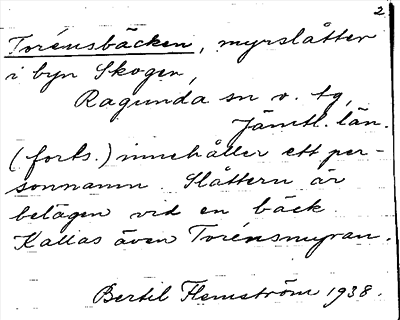 2.
Torénsbäcken, myrslåtter
i byn Skogen,
Ragunda sn o. tg,
Jämtl. län.
(forts.) innehåller ett per-
sonnamn. Slåttern är
belägen vid en bäck
Kallas även Torénsmyran.
Bertil Flemström 1938.